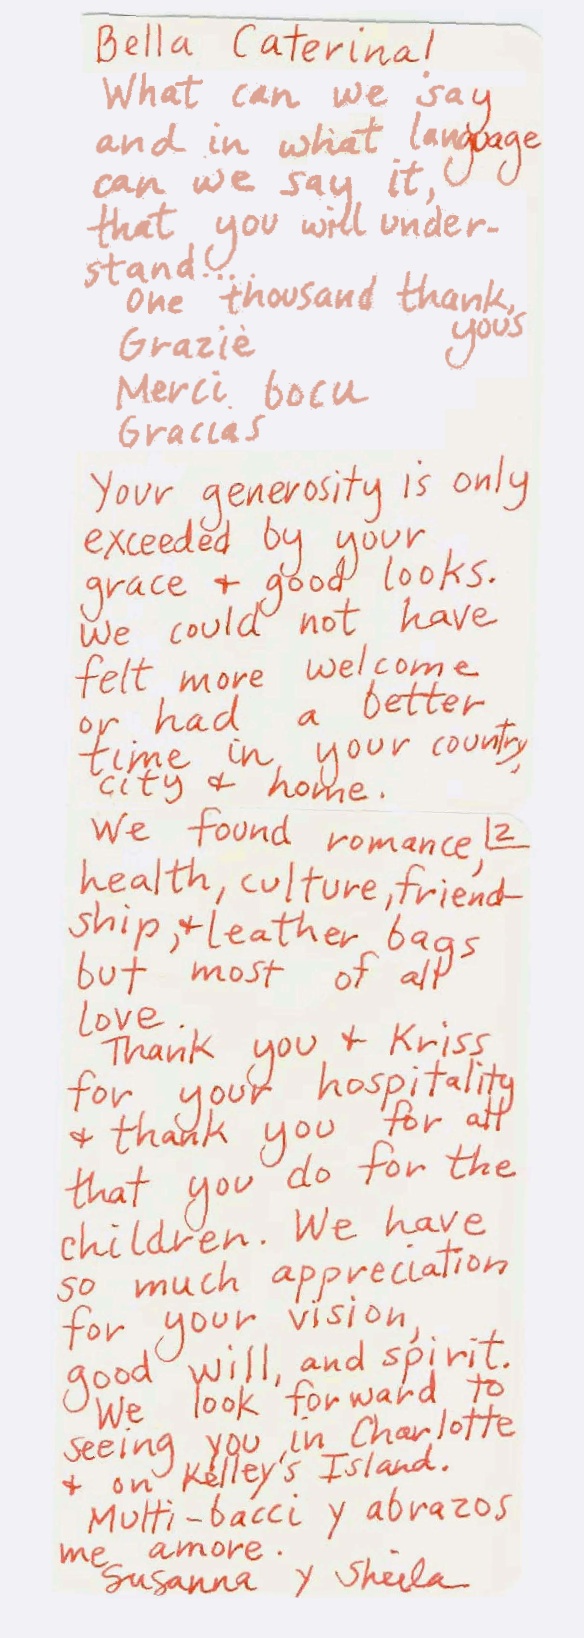 Bella Caterina!
What can we say
and in what language
can we say it,
that you will under-
stand....
One thousand thank
yous
Graziè
Merci bocu
Gracias
Your generosity is only
exceeded by your
grace + good looks.
We could not have
felt more welcome
or had a better
time in your country,
city & home.
2
We found romance,
health, culture, friend-
ship, + leather bags
but most of all
love.
Thank you + Kriss
for your hospitality
& thank you for all
that you do for the
children. We have
so much appreciation
for your vision,
good will, and spirit.
We look forward to
seeing you in Charlotte
+ on Kelley's Island.
Multi-bacci y abrazos
me amore.
Susanna y Sheila